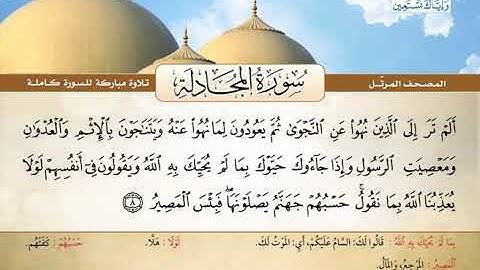 وَإِيَّاكَ نَسْتَعِينُ
المصحف المرتّل
سُورَةُ المُجَادلَة
تلاوة مباركة للسورة كاملة
أَلَمْ تَرَ إِلَى الَّذِينَ نُهُوا عَنِ النَّجْوَىٰ ثُمَّ يَعُودُونَ لِمَا نُهُوا عَنْهُ وَيَتَنَاجَوْنَ بِالْإِثْمِ وَالْعُدْوَانِ
وَمَعْصِيَتِ الرَّسُولِ وَإِذَا جَاءُوكَ حَيَّوْكَ بِمَا لَمْ يُحَيِّكَ بِهِ اللَّهُ وَيَقُولُونَ فِي أَنْفُسِهِمْ لَوْلَا
يُعَذِّبُنَا اللَّهُ بِمَا نَقُولُ ۚ حَسْبُهُمْ جَهَنَّمُ يَصْلَوْنَهَا ۖ فَبِئْسَ الْمَصِيرُ ٨
بِمَا لَمْ يُحَيِّكَ بِهِ اللَّهُ : قَالُوا لَكَ: السَّامُ عَلَيْكُمْ، أَيِ: المَوْتُ لَكَ. لَوْلَا : هَلَّا. حَسْبُهُمْ : كَفَتْهُم.
الْمَصِيرُ : المَرْجِعُ، وَالمَآلُ.